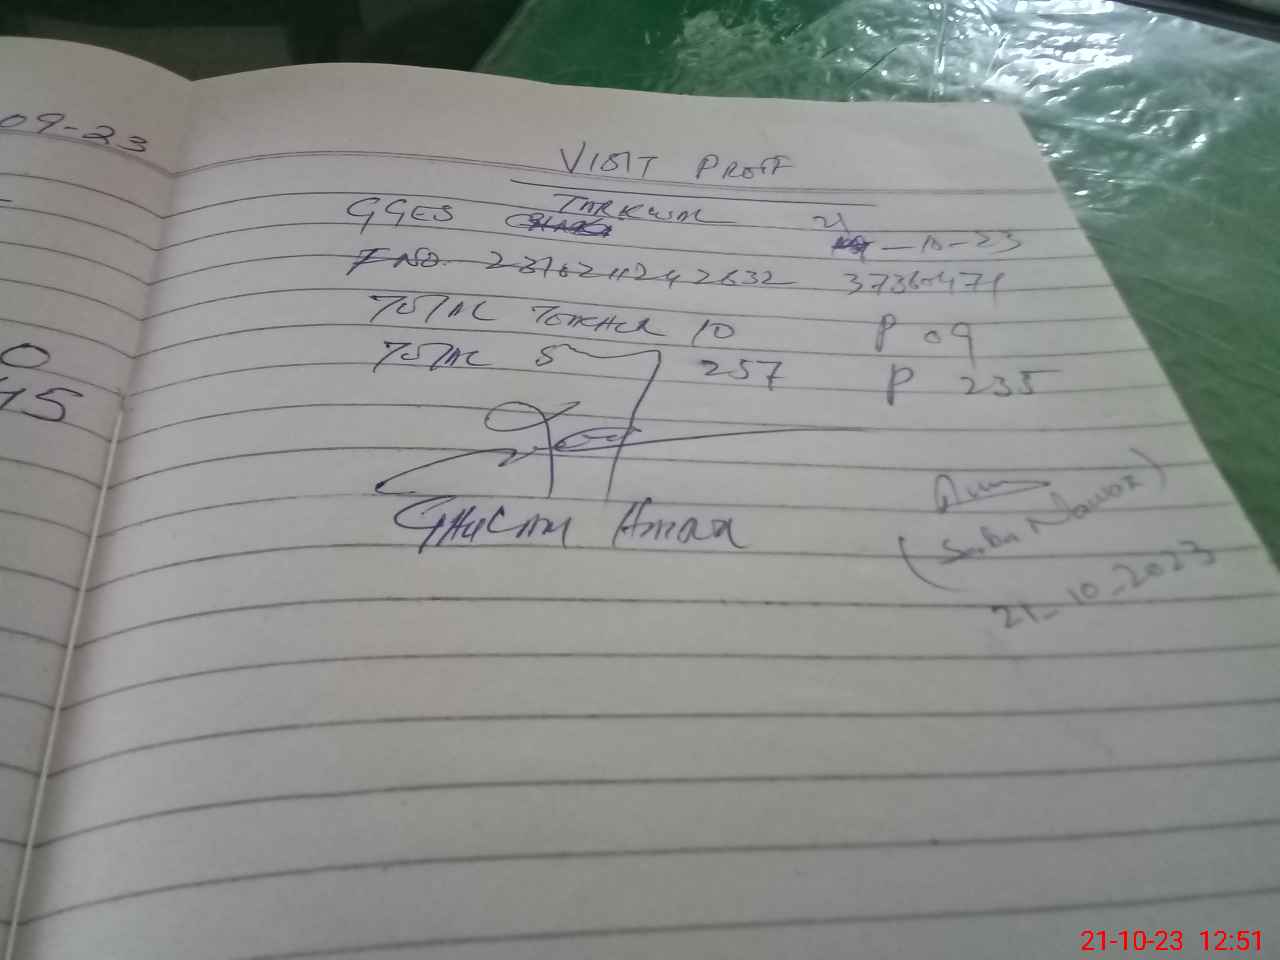 09-23
0
45
VISIT PROFF
GGES TARKWAL 21-10-23
TOTAL TEACHER 10 P 09
TOTAL S 257 P 235
GHULAM
(Saba Nawaz)
21-10-2023
21-10-23 12:51